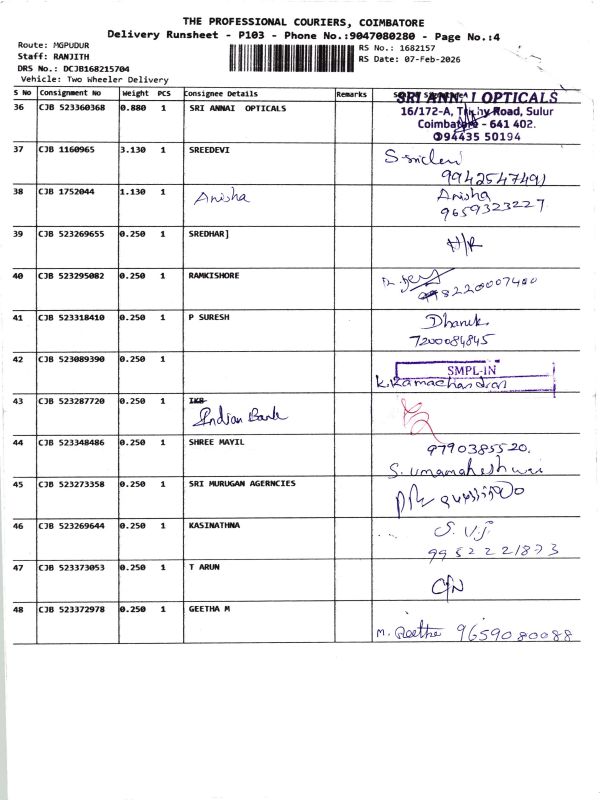 THE PROFESSIONAL COURIERS, COIMBATORE
Delivery Runsheet - P103 - Phone No.:9047080280 - Page No.:4
Route: MGPUDUR
Staff: RANJITH
DRS No.: DCJB168215704
Vehicle: Two Wheeler Delivery
RS No.: 1682157
RS Date: 07-Feb-2026
S No Consignment No Weight PCS Consignee Details Remarks
36 CJB 523360368 0.880 1 SRI ANNAI OPTICALS
SRI ANNAI OPTICALS
16/172-A, Trichy Road, Sulur
Coimbatore - 641 402.
94435 50194
37 CJB 1160965 3.130 1 SREEDEVI
9942547491
38 CJB 1752044 1.130 1 Anisha Anisha
9659323227
39 CJB 523269655 0.250 1 SREDHAR] H/R
40 CJB 523295082 0.250 1 RAMKISHORE
41 CJB 523318410 0.250 1 P SURESH Dhanuk
7200084845
42 CJB 523089390 0.250 1
SMPL-IN
K. Ramachandran
43 CJB 523287720 0.250 1 IKB
Indian Bank
44 CJB 523348486 0.250 1 SHREE MAYIL 9790385520.
S. Umamaheshwari
45 CJB 523273358 0.250 1 SRI MURUGAN AGERNCIES
46 CJB 523269644 0.250 1 KASINATHNA S. V.J.
9952221873
47 CJB 523373053 0.250 1 T ARUN
48 CJB 523372978 0.250 1 GEETHA M
M. Geetha 9659080088